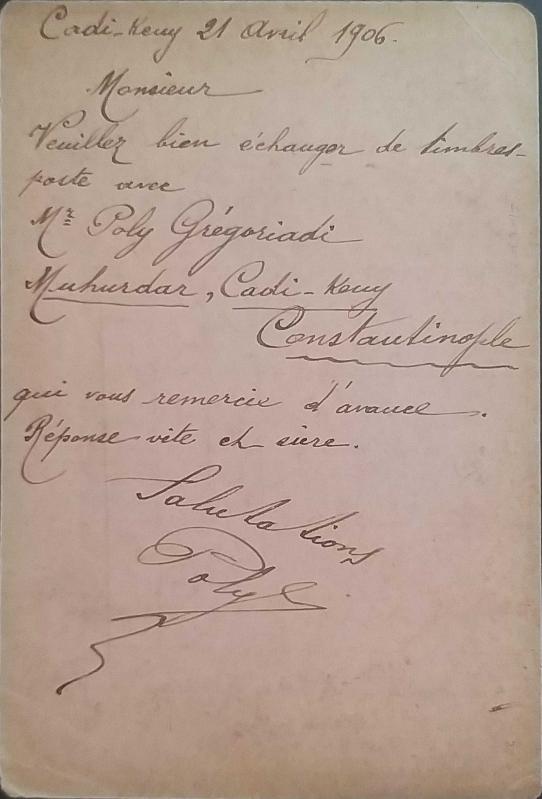 Cadi-Keuy 21 Avril 1906.
Monsieur
Veuillez bien échanger de timbres-
poste avec
Mr Poly Grégoriadi
Muhurdar, Cadi-Keuy
Constantinople
qui vous remercie d'avance.
Réponse vite et sûre.
Salutations
Poly